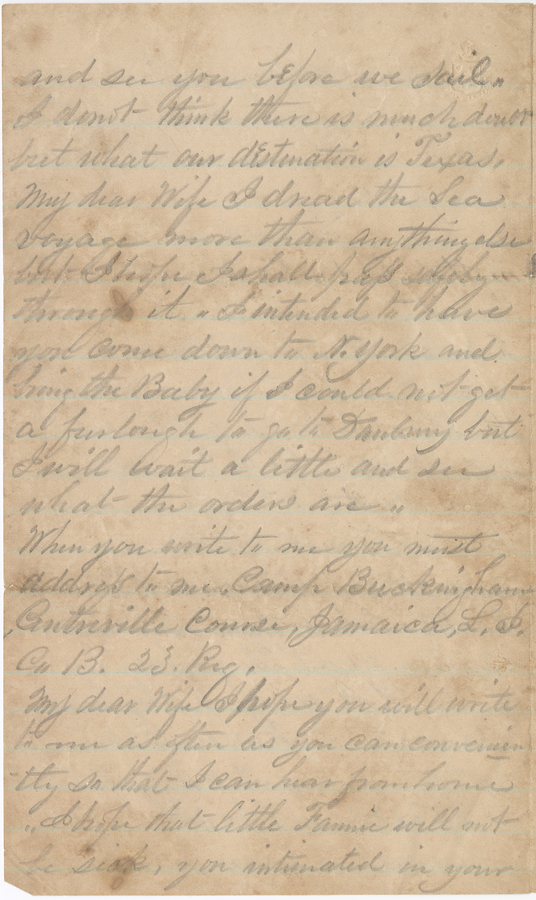 and see you before we sail„
I donot think there is much doubt
but what our destination is Texas,
My dear Wife I dread the Sea
voyage more than anything else
but I hope I shall pass safely
through it „ I intended to have
you come down to N. York and
bring the Baby if I could not get
a furlough to go to Danbury but
I will wait a little and see
what the orders are „
When you write to me you must
address to me, Camp Buckingham
Centreville Course, Jamaica, L. I.
Co B. 23. Reg.
My dear Wife I hope you will write
to me as often as you can convenien
tly so that I can hear from home
„ I hope that little Fannie will not
be sick, you intimated in your